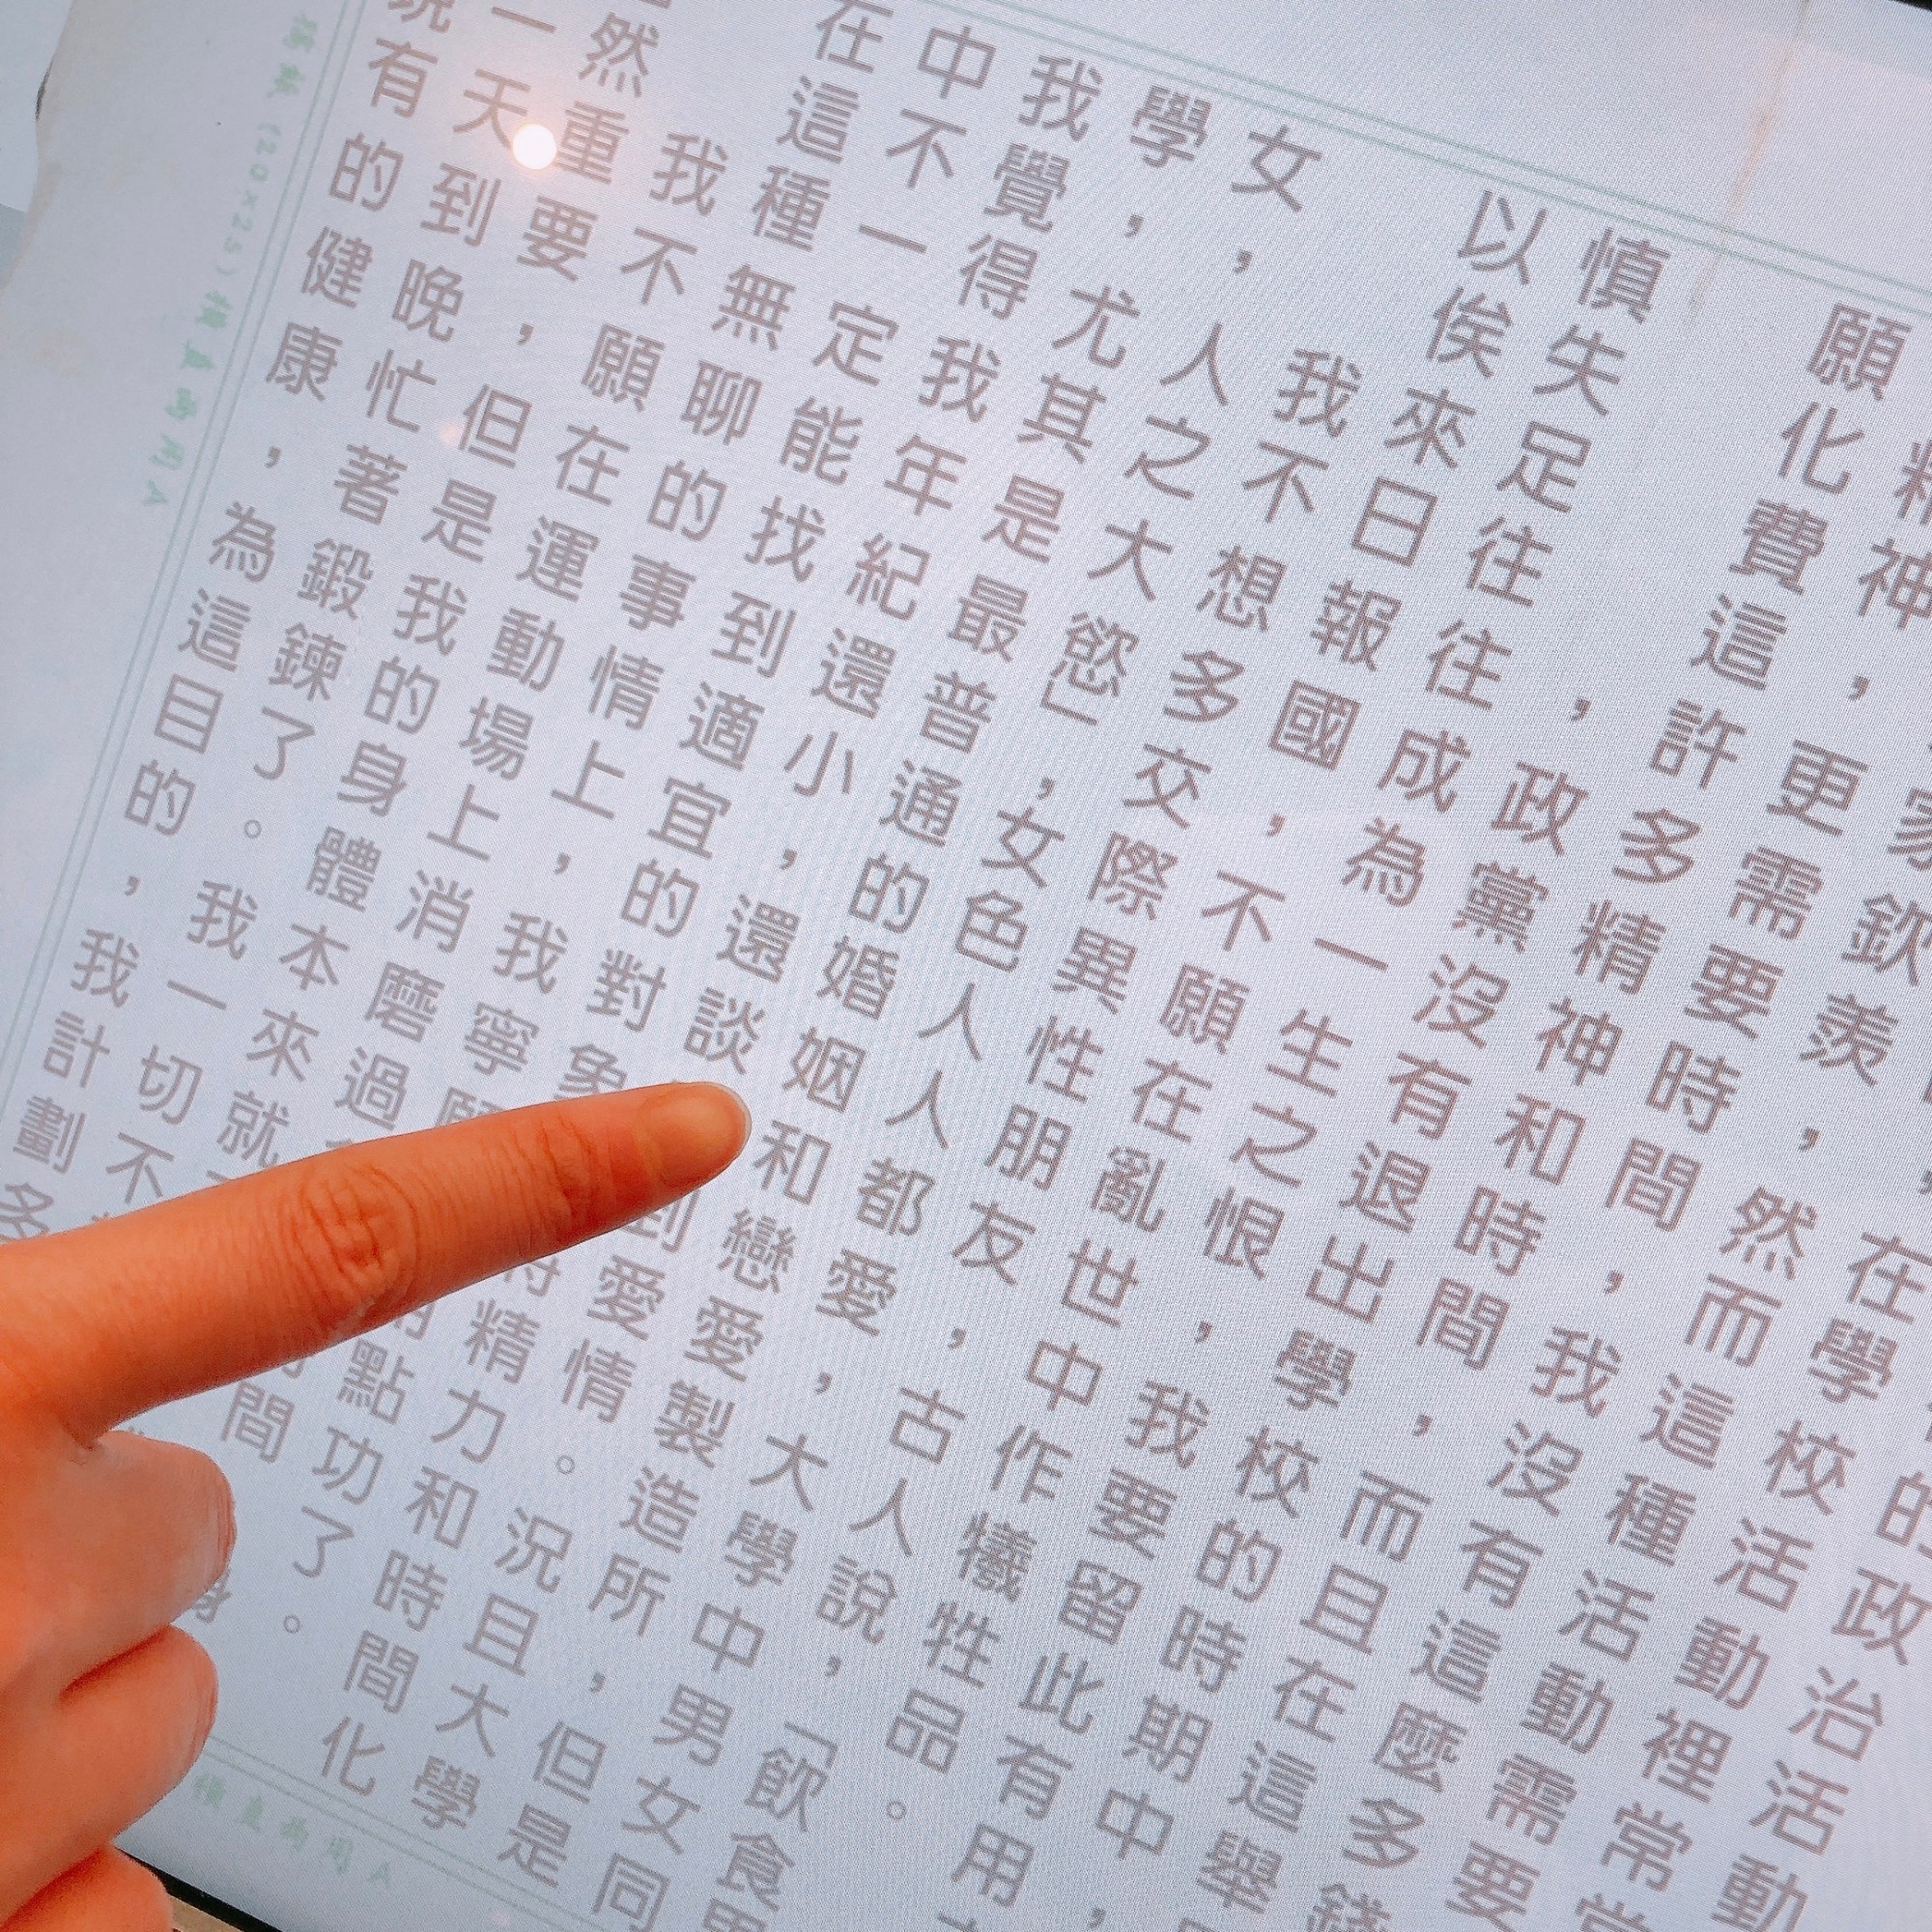 的政治活動
在學校活動裡常常
家欽羨，然而這種活動需要
精神，更需要時間，我沒有這麼多錢
願化費這許多精神和時間，而且在這舉
，政黨沒有退出學校的時期中，
慎失足往往成為一生之恨，我要留此有用
以俟來日報國，不願在亂世中作犧牲品。
我不想多交際異性朋友，古人說，「飲食男
女，人之大慾」，女色人人都愛，大學中男女同
學，尤其是最普通的婚姻和戀愛製造所，但是
我覺得我年紀還小，還談到愛情。況且大學
中不一定能找到適宜的對象精力和時間化
在這種無聊的事情上，我寧願點功了。
我不願在運動場上消磨過間
然重要，但是我的身體本來就
一天到晚忙著鍛鍊了。我一切不
說有的健康，為這目的，我計劃多